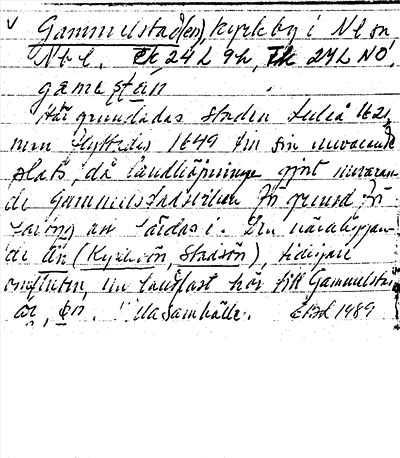 v Gammelstad(en), kyrkby i Nl sn
Nbl. Ek 24 L 9h, Tk 24L NO.
gamestan
Här grundades staden Luleå 1621,
men flyttades 1649 till sin nuvarande
plats, då landhöjningen gjort nuvaran-
de Gammelstadsviken för grund för
att Den närliggan-
de ön (Kyrkön, Stadsön), tidigare
omfluten, nu landfast hör till Gammelstan
är, villasamhälle. EBd 1989